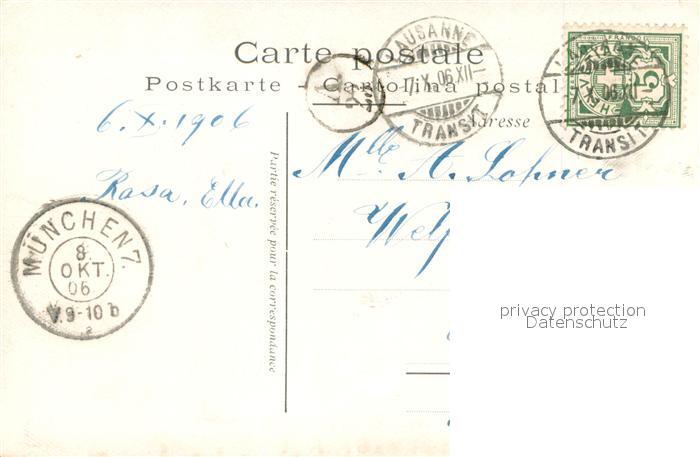 Carte postale
Postkarte - Cartolina postal
Adresse
6. X. 1906
Rosa. Ella.
Mlle A. Lohner
Partie réservée pour la correspondance
LAUSANNE
7.X.06.XII
TRANSIT
TRANSIT
5
MÜNCHEN 7.
8.
OKT.
06
V.9-10 b
a
privacy protection
Datenschutz